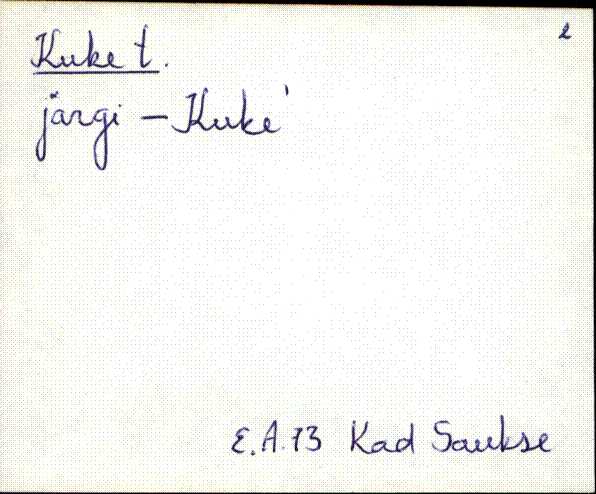 2
Kuke t.
järgi – Kuke'
E.A. 73 Kad Saukse